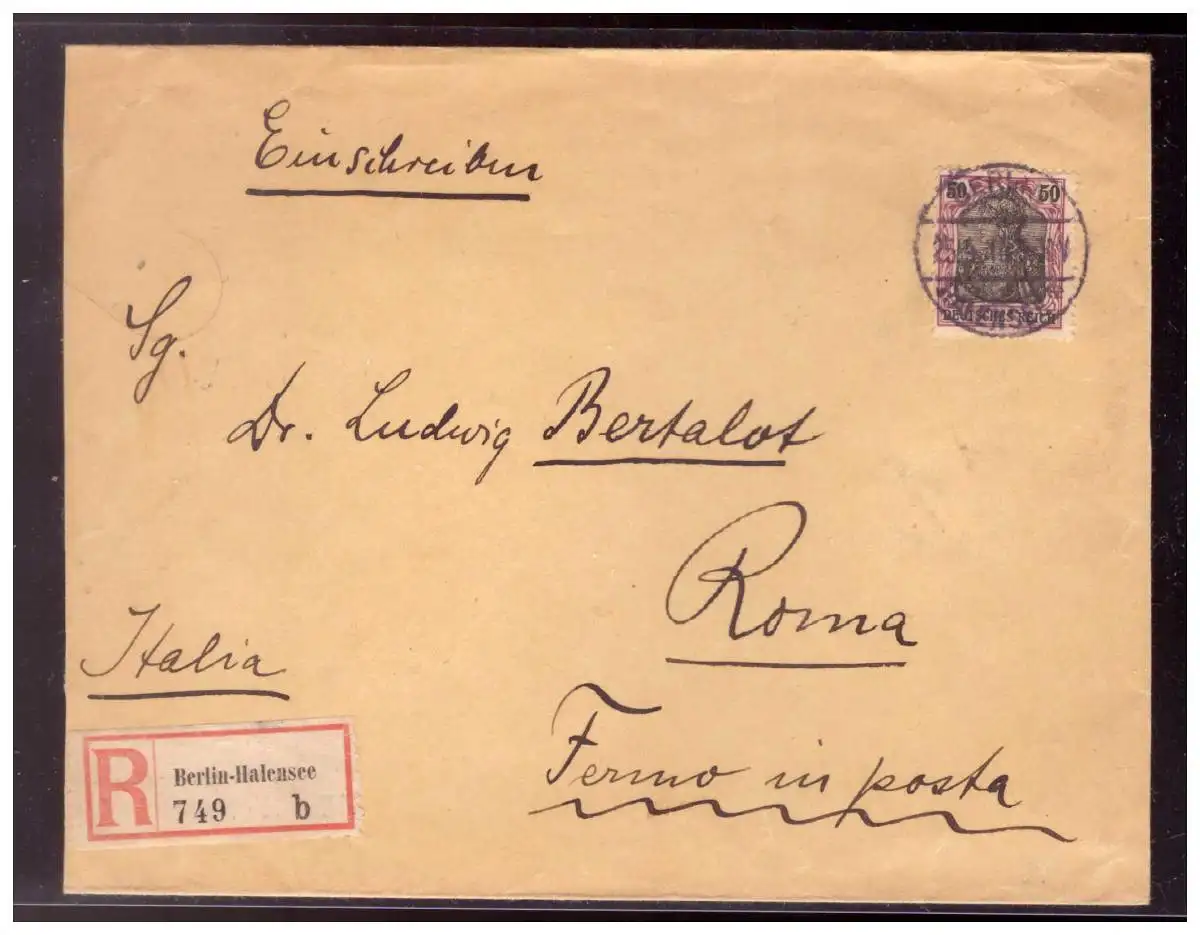 Einschreiben
50 50
DEUTSCHES REICH
Sg.
Dr. Ludwig Bertalot
Roma
Italia
Fermo in posta
R Berlin-Halensee
749 b